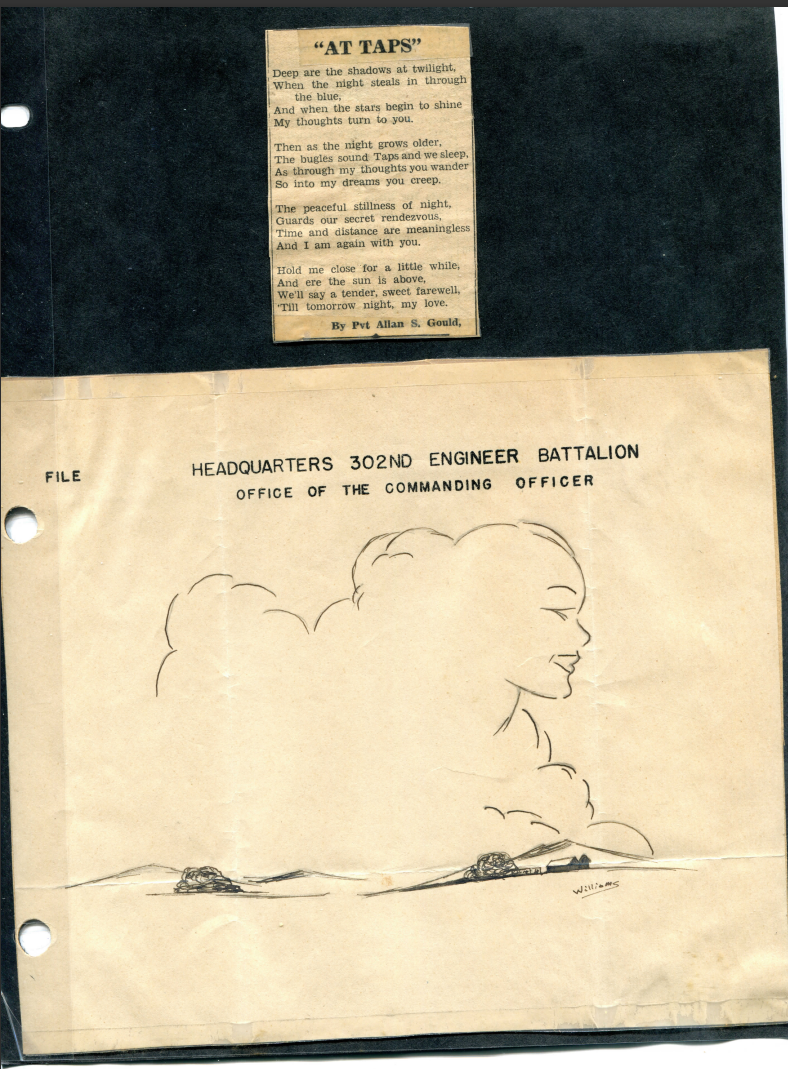 "AT TAPS"
Deep are the shadows at twilight,
When the night steals in through
the blue,
And when the stars begin to shine
My thoughts turn to you.
Then as the night grows older,
The bugles sound Taps and we sleep,
As through my thoughts you wander
So into my dreams you creep.
The peaceful stillness of night,
Guards our secret rendezvous,
Time and distance are meaningless
And I am again with you.
Hold me close for a little while,
And ere the sun is above,
We'll say a tender, sweet farewell,
'Till tomorrow night, my love.
By Pvt Allan S. Gould,
HEADQUARTERS 302ND ENGINEER BATTALION
FILE
OFFICE OF THE COMMANDING OFFICER
Williams